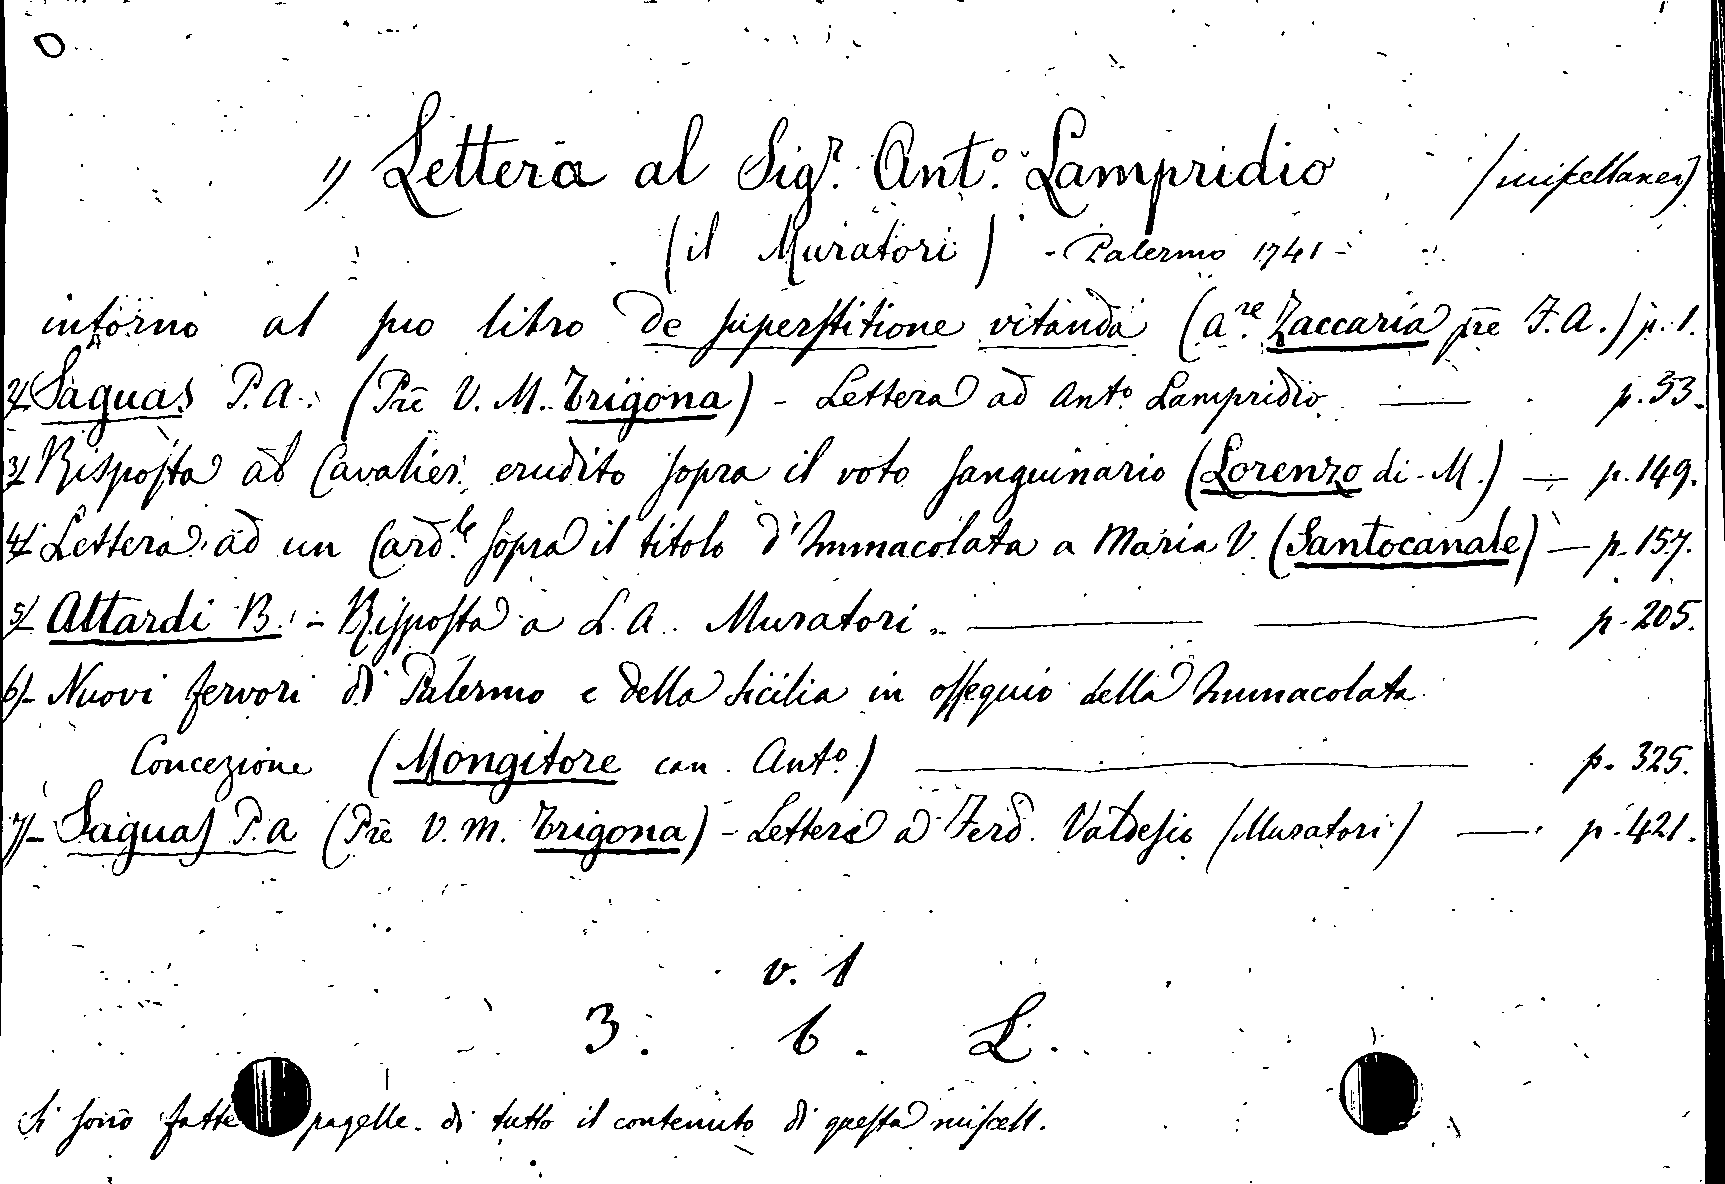 1) Lettera al Sigr. Anto. Lampridio (miscellanea)
(il Muratori) - Palermo 1741 -
intorno al suo libro de superstitione vitanda (are. Zaccaria pre F. A.) p. 1.
2/ Saguas P. A. (Pre V. M. Trigona) - Lettera ad Anto. Lampridio — p. 53.
3/ Risposta al Cavalier erudito sopra il voto sanguinario (Lorenzo di M.) — p. 149.
4/ Lettera ad un Card.le sopra il titolo d'Immacolata a Maria V. (Santocanale) — p. 157.
5/ Attardi B. - Risposta a L. A. Muratori — p. 205.
6/- Nuovi fervori di Palermo e della Sicilia in ossequio della Immacolata
Concezione (Mongitore can. Anto.) — p. 325.
7/- Saguas P. a (Pre V. M. Trigona) - Lettera a Ferd. Valdesio (Muratori) — p. 421.
v. 1
3. 6. L.
Si sono fatte pagelle di tutto il contenuto di questa miscell.